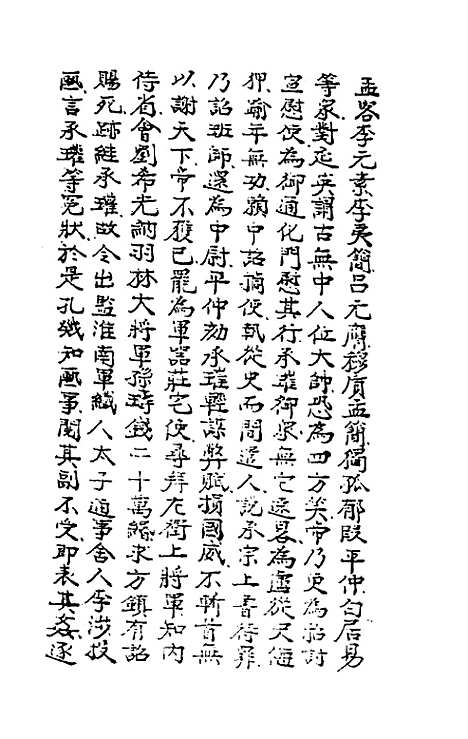 孟容李元素李夷簡呂元膺穆質孟簡獨孤郁段平仲白居易
等衆對延英謂古無中人位大帥恐為四方笑帝乃更為招討
宣慰使為御通化門慰其行承璀御衆無它遠畧為盧從史侮
狎踰年無功賴中詔擒使執從史而間遣人說承宗上書待罪
乃詔班師還為中尉平仲劾承璀輕謀弊賦損國威不斬首無
以謝天下帝不獲已罷為軍器莊宅使尋拜左衛上將軍知內
侍省會劉希光納羽林大將軍孫璹錢二十萬緡求方鎮有詔
賜死跡絓承璀故令出監淮南軍纖人太子通事舍人李涉投
匭言承璀等冤狀於是孔戣知匭事閱其副不受即表其姦逐